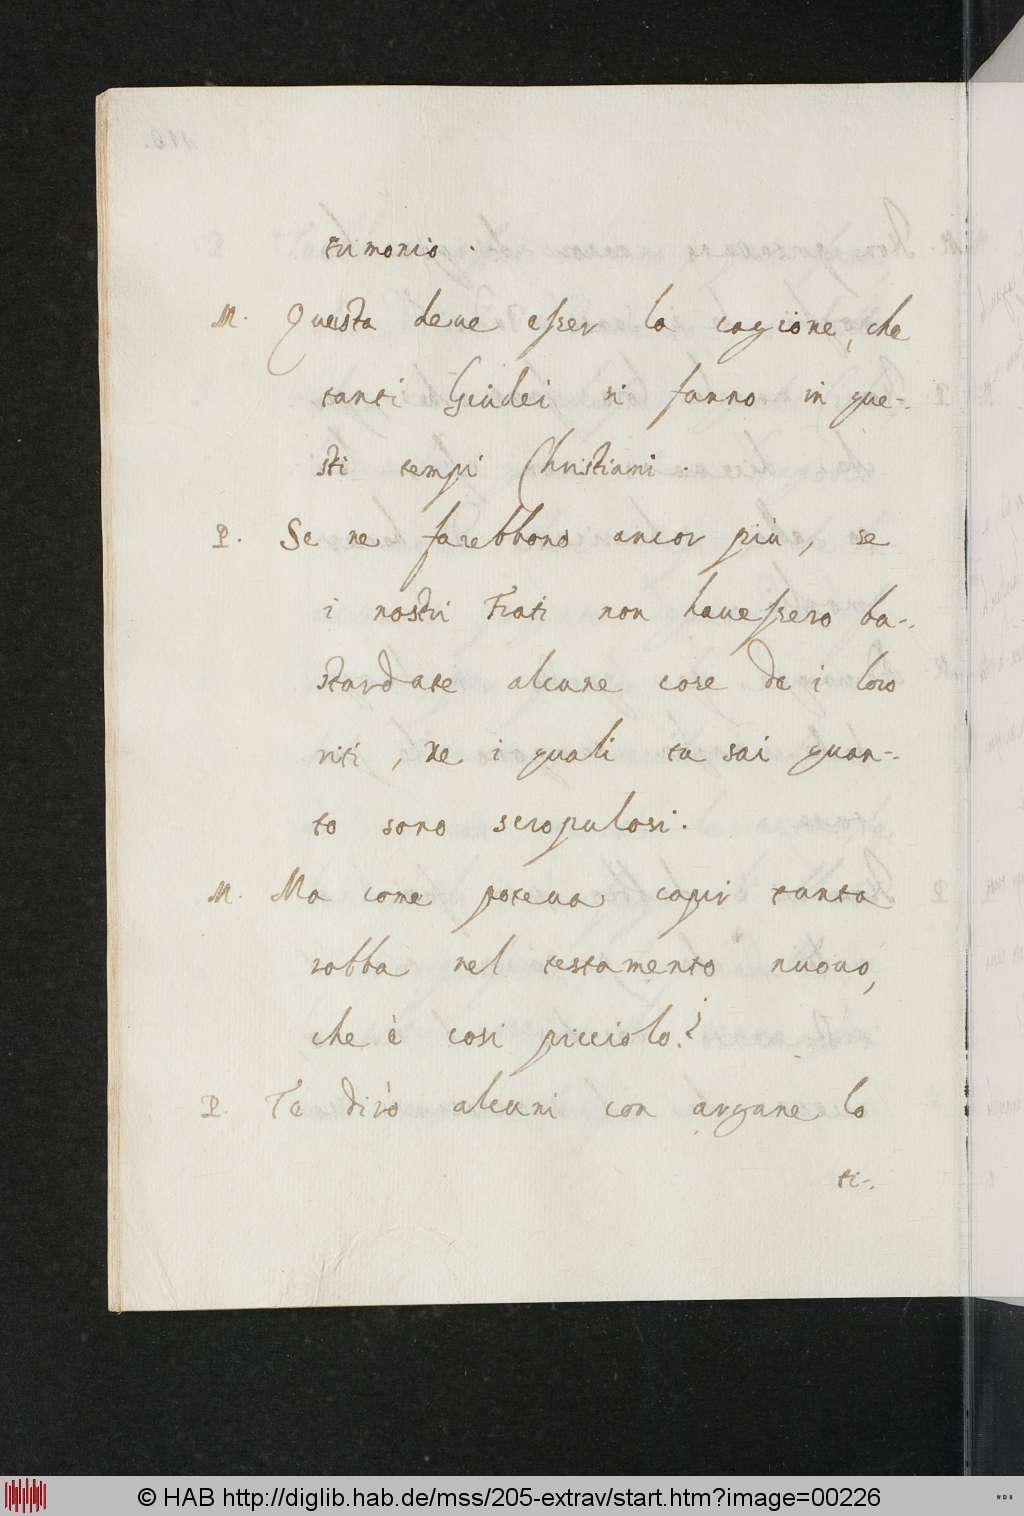 trimonio.
M. Questa deue esser la cagione, che
tanti Giudei si fanno in que-
sti tempi Christiani.
P. Se ne farebbono ancor più, se
i nostri Frati non hauessero ba-
stardate alcune cose da i loro
riti, ne i quali tu sai quan-
to sono scropulosi.
M. Ma come poteua capir tanta
robba nel testamento nuouo,
che è cosi picciolo?
P. Te dirò alcuni con argane lo
ti-
© HAB http://diglib.hab.de/mss/205-extrav/start.htm?image=00226